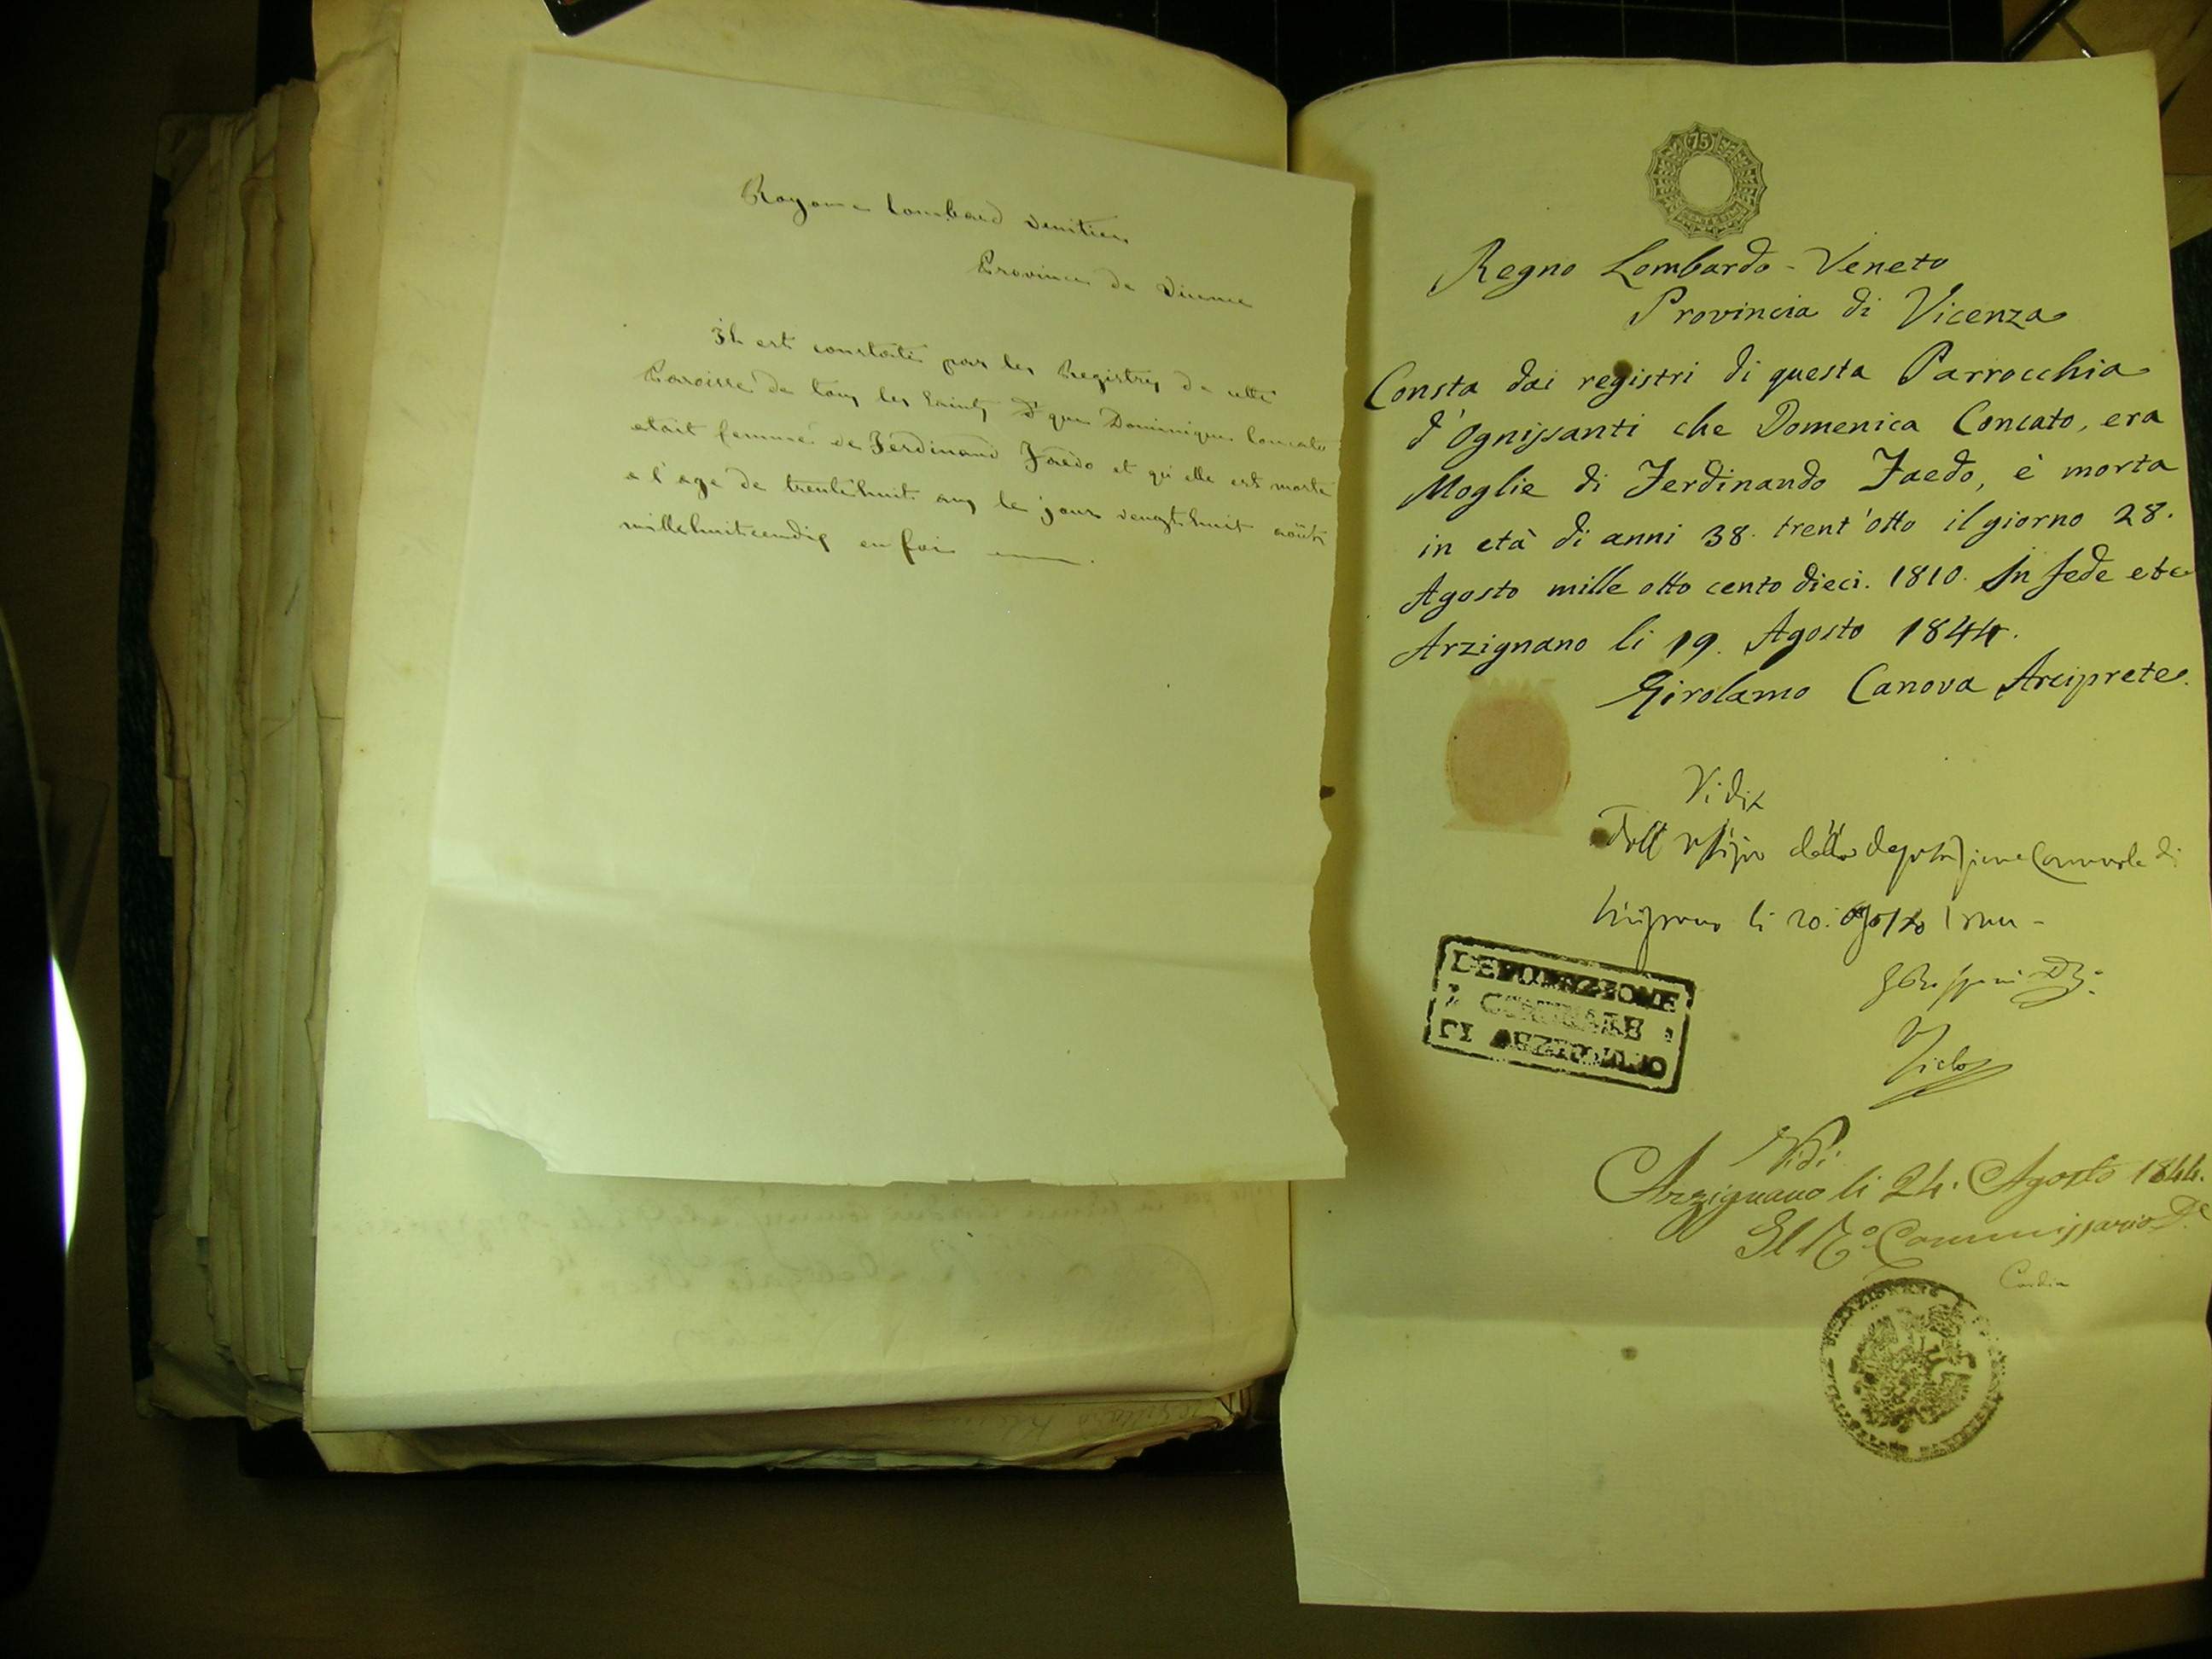 Royome lombard venitien
Province de Vicence
Il est constaté par les Registres de cette
Paroisse de tous les Saints que Dominique Concato
était femme de Ferdinand Faedo et qu'elle est morte
a l'age de trentehuit ans le jour vengthuit août
millehuitcendix en foi
75
CENTESIMI
Regno Lombardo-Veneto
Provincia di Vicenza
Consta dai registri di questa Parrocchia
d'Ognissanti che Domenica Concato, era
Moglie di Ferdinando Faedo, è morta
in età di anni 38. trent'otto il giorno 28.
Agosto mille otto cento dieci. 1810. In fede etc
Arzignano li 19. Agosto 1844.
Girolamo Canova Arciprete.
Vidi
Dall'uffizio della deputazione Comunale di
li 20. Agosto
DEPUTAZIONE
COMUNALE
DI ARZIGNANO
Vidi
Arzignano li 24. Agosto 1844.
Il R.o Commissario D.e